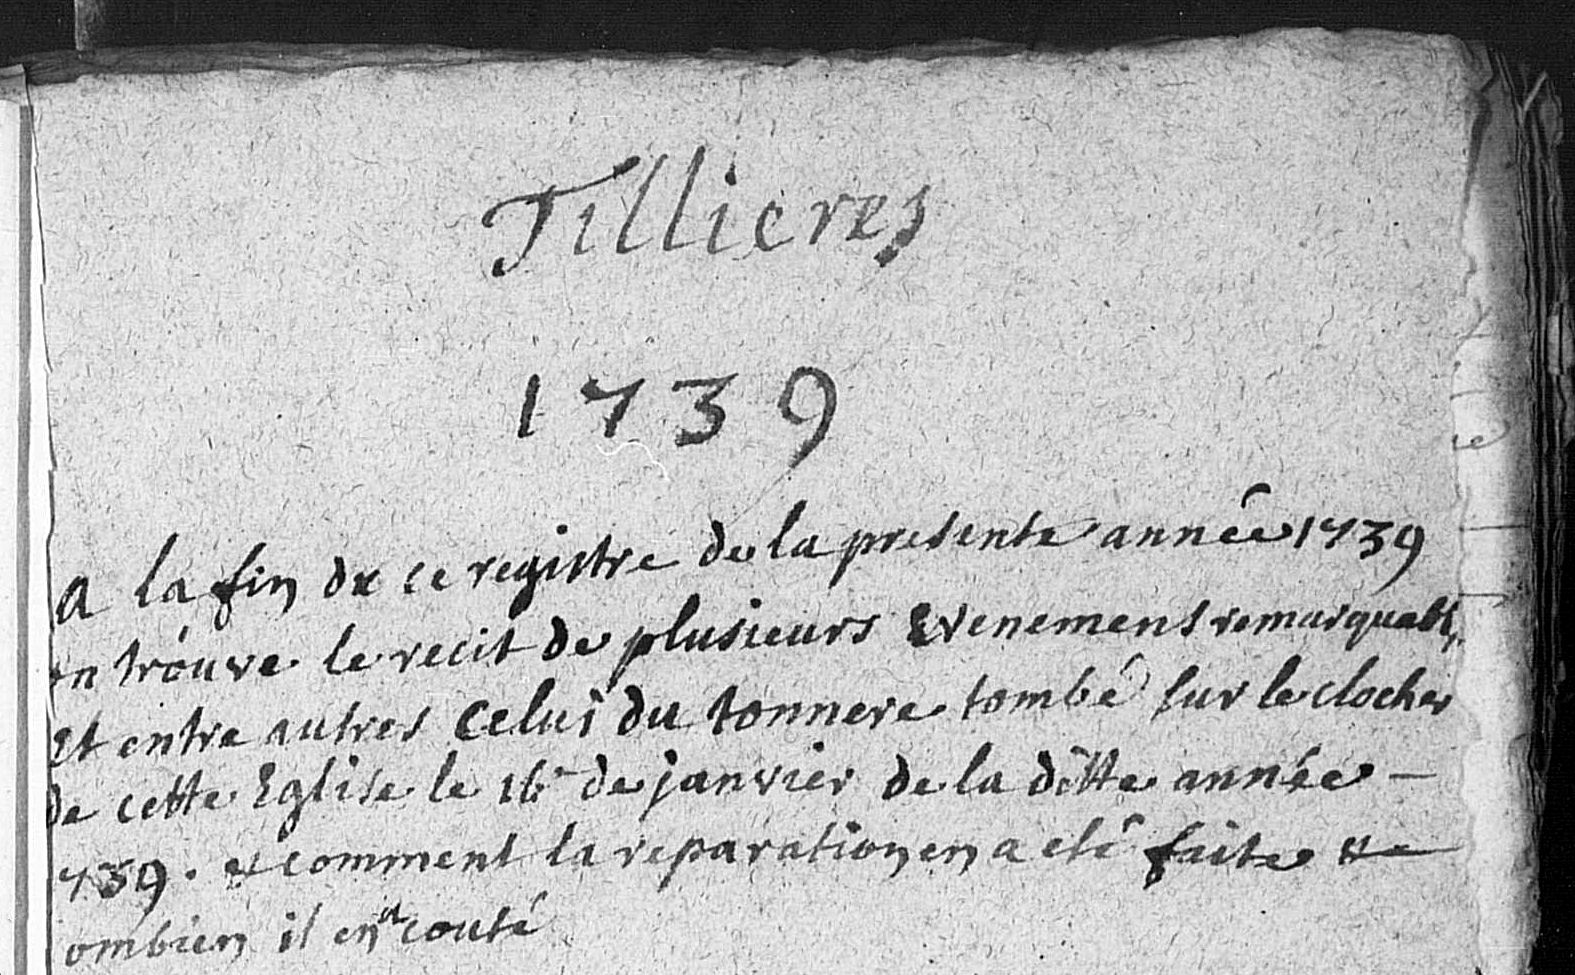 Tillieres
1739
a la fin de ce registre de la presente année 1739
on trouve le recit de plusieurs Evenemens remarquabl
Et entre autres celui du tonnere tombé sur le clocher
de cette Eglise le 16 de janvier de la ditte année
739. et comment la reparation en a eté faite et
ombien il en a couté